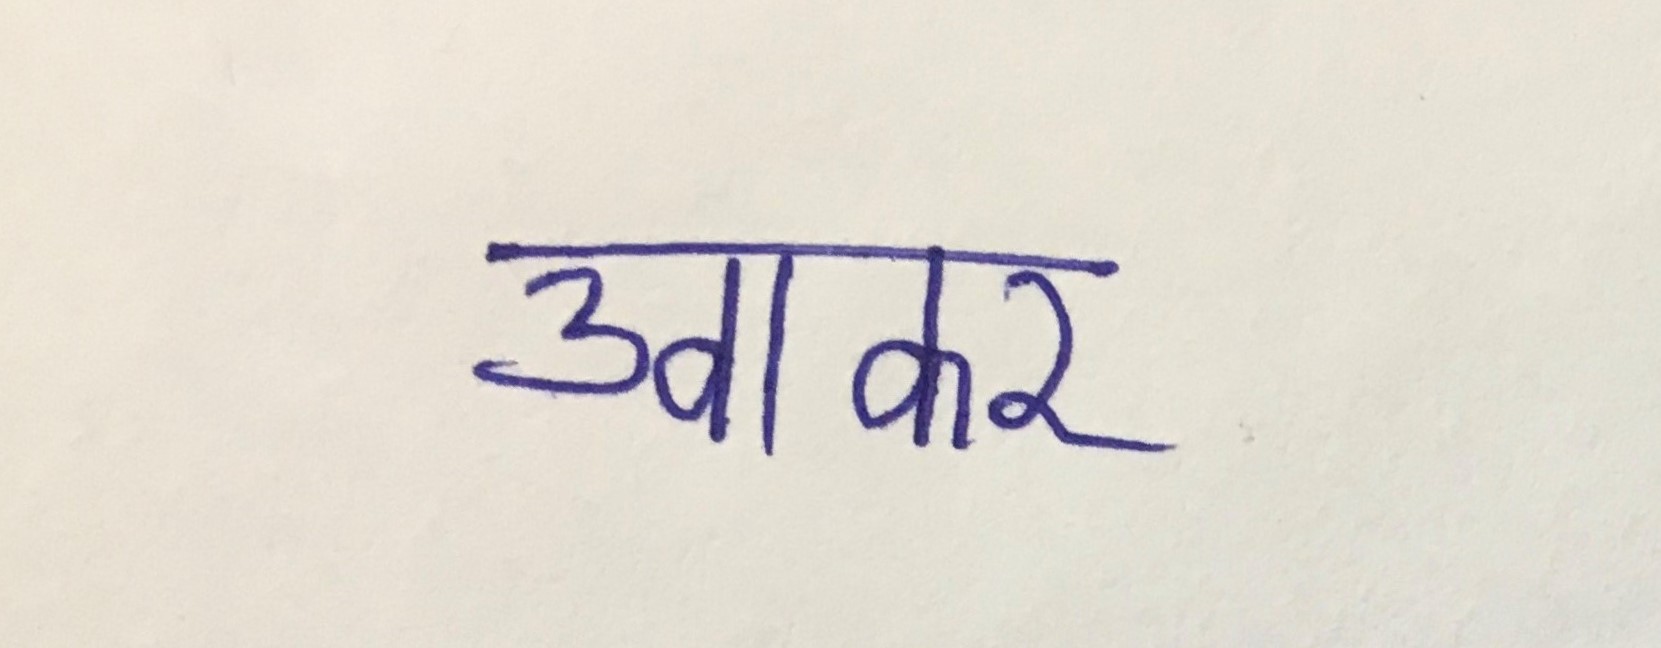 उवाकर